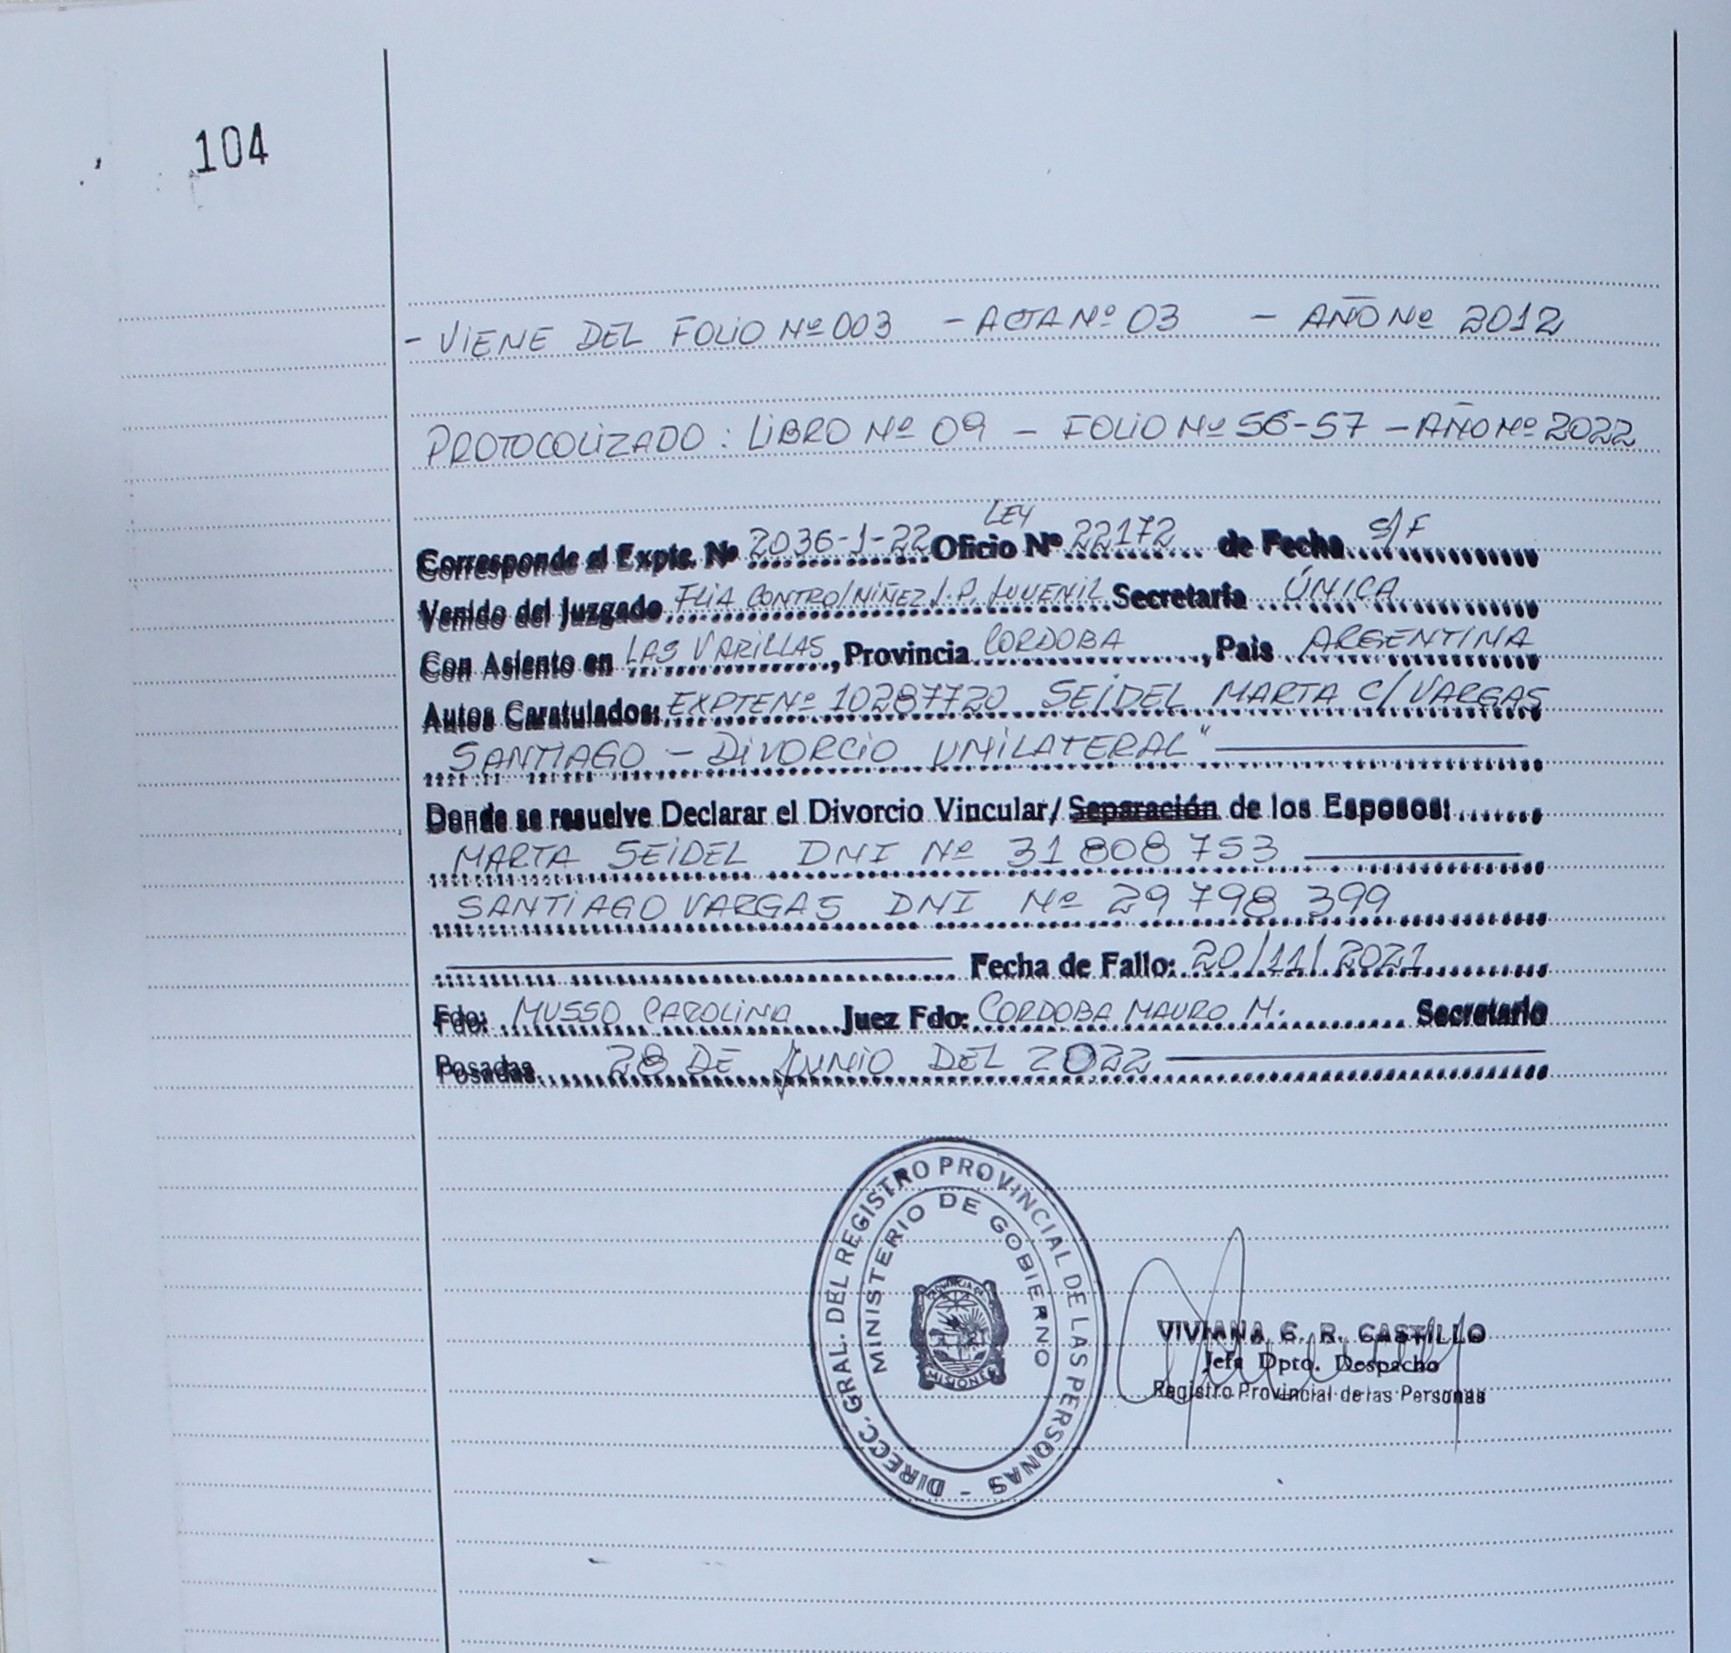 104
- VIENE DEL FOLIO Nº 003 - ACTA Nº 03 - AÑO Nº 2012
PROTOCOLIZADO : LIBRO Nº 09 - FOLIO Nº 56-57 - AÑO Nº 2022
LEY
Corresponde al Expte. Nº 2036-J-22 Oficio Nº 22172 de Fecha S/F
Venido del Juzgado FLIA CONTROL/NIÑEZ J.P. JUVENIL Secretaría ÚNICA
Con Asiento en LAS VARILLAS, Provincia CORDOBA, Pais ARGENTINA
Autos Caratulados: EXPTE Nº 10287720 SEIDEL MARTA C/ VARGAS
SANTIAGO - DIVORCIO UNILATERAL"
Donde se resuelve Declarar el Divorcio Vincular/ Separación de los Esposos:
MARTA SEIDEL DNI Nº 31 808 753
SANTIAGO VARGAS DNI Nº 29 798 399
Fecha de Fallo: 20/11/2021
Fdo: MUSSO CAROLINA Juez Fdo: CORDOBA MAURO M. Secretario
Posadas 28 DE JUNIO DEL 2022
DIRECC. GRAL. DEL REGISTRO PROVINCIAL DE LAS PERSONAS -
MINISTERIO DE GOBIERNO
PROVINCIA DE
MISIONES
VIVIANA G. R. CASTILLO
Jefa Dpto. Despacho
Registro Provincial de las Personas